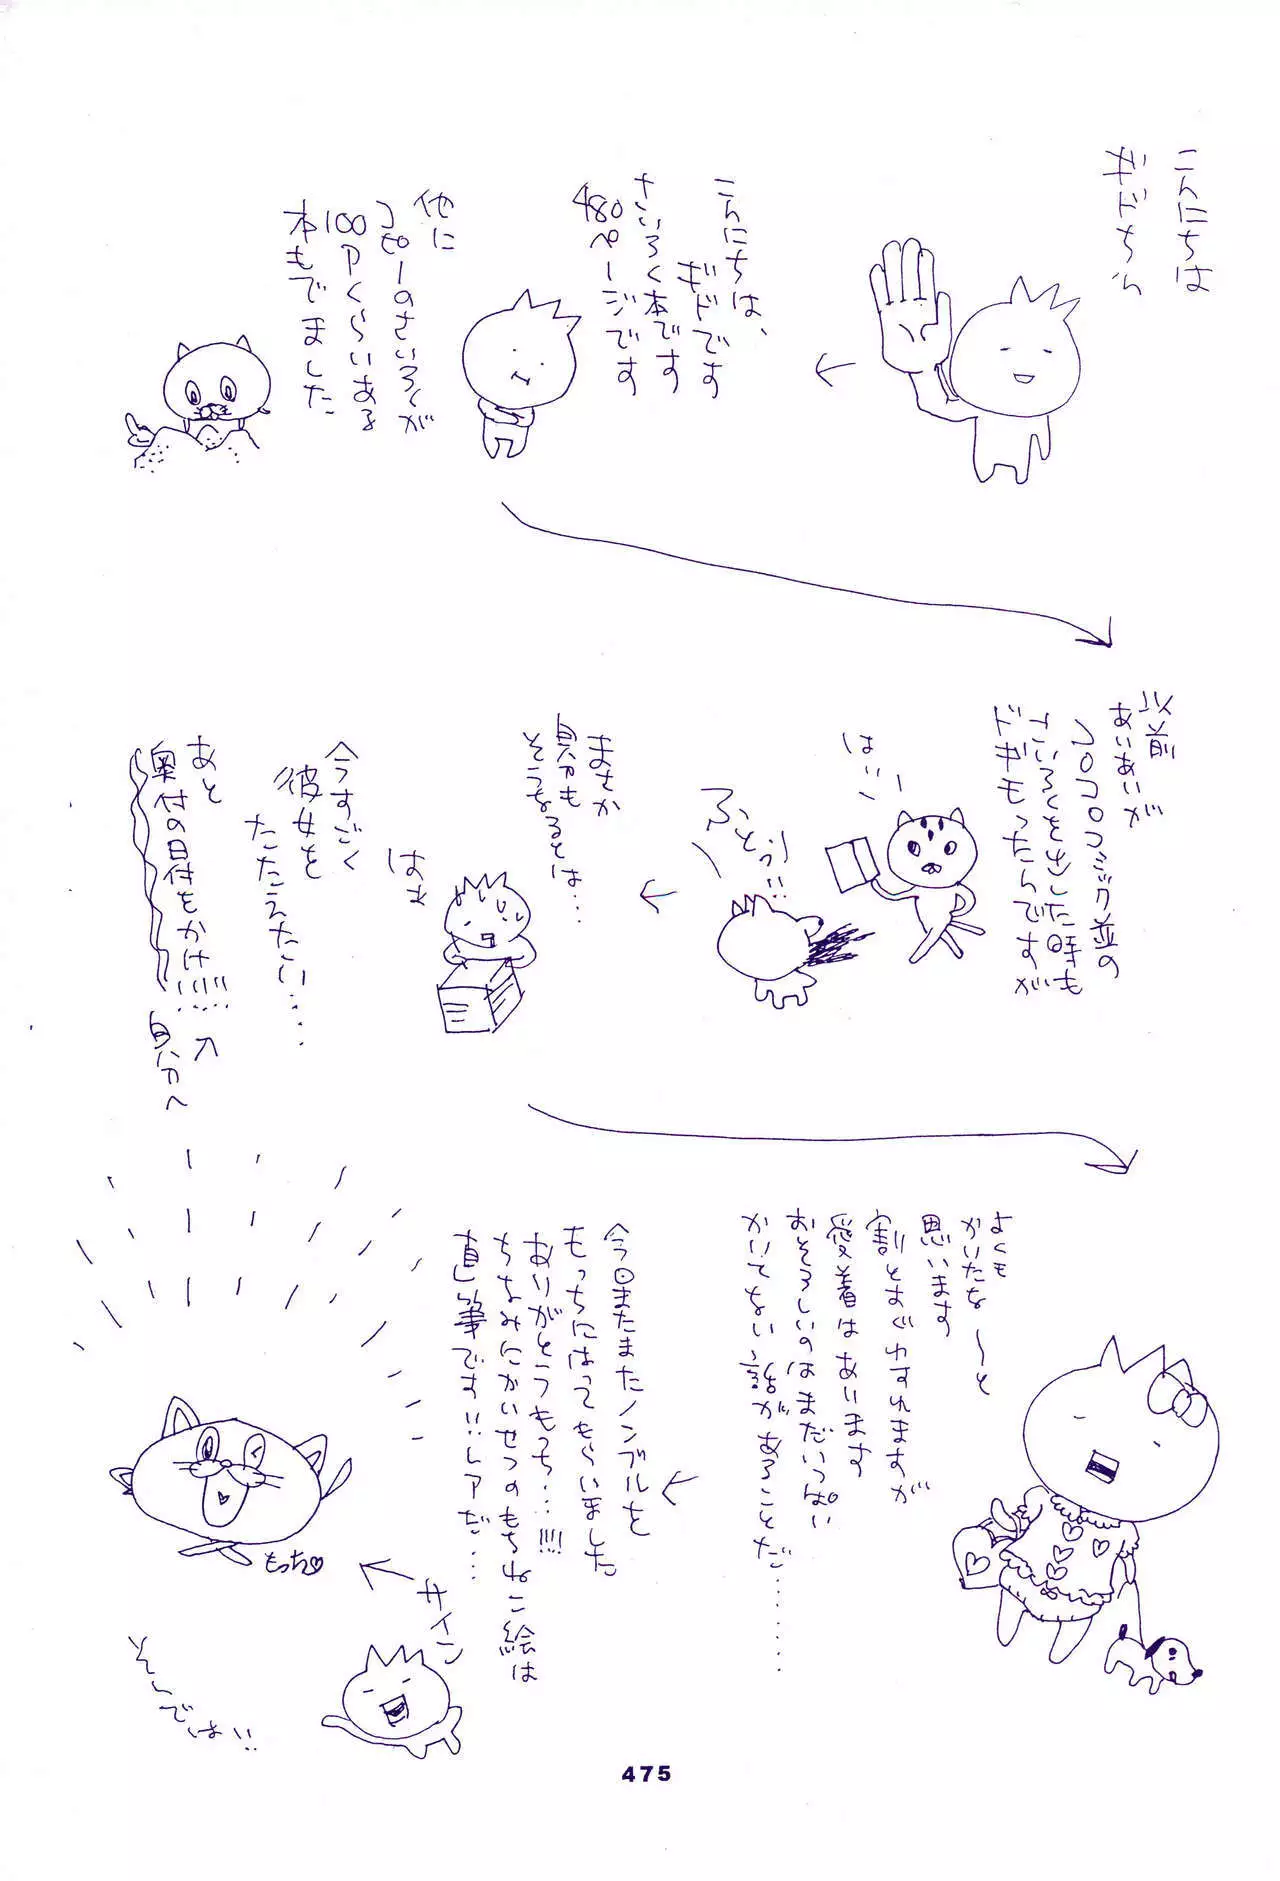 こんにちは
ギドちん
こんにちは、
ギドです
さいろく本です
480ページです
他に
コピーのさいろくが
100Pくらいある
本もでました
以前
あいあいが
コロコロコミック並の
さいろくを出した時も
ドギモったんですが
はい
ふとぅ!!
まさか
自分も
そうなるとは…
はぁ
今すごく
彼女を
たたえたい……
あと
奥付の日付をかけ!!!!
自分へ
よくも
かいたな〜と
思います
割とすぐわすれますが
愛着はあります
おそろしいのはまだいっぱい
かいてない話があることだ………
今回またまたノンブルを
もっちにはってもらいました
ありがとうもっち…!!!!
ちなみにかいせつのもちねこ絵は
直筆です!!レアだ…
サイン
もっち♡
そいでは!!
475